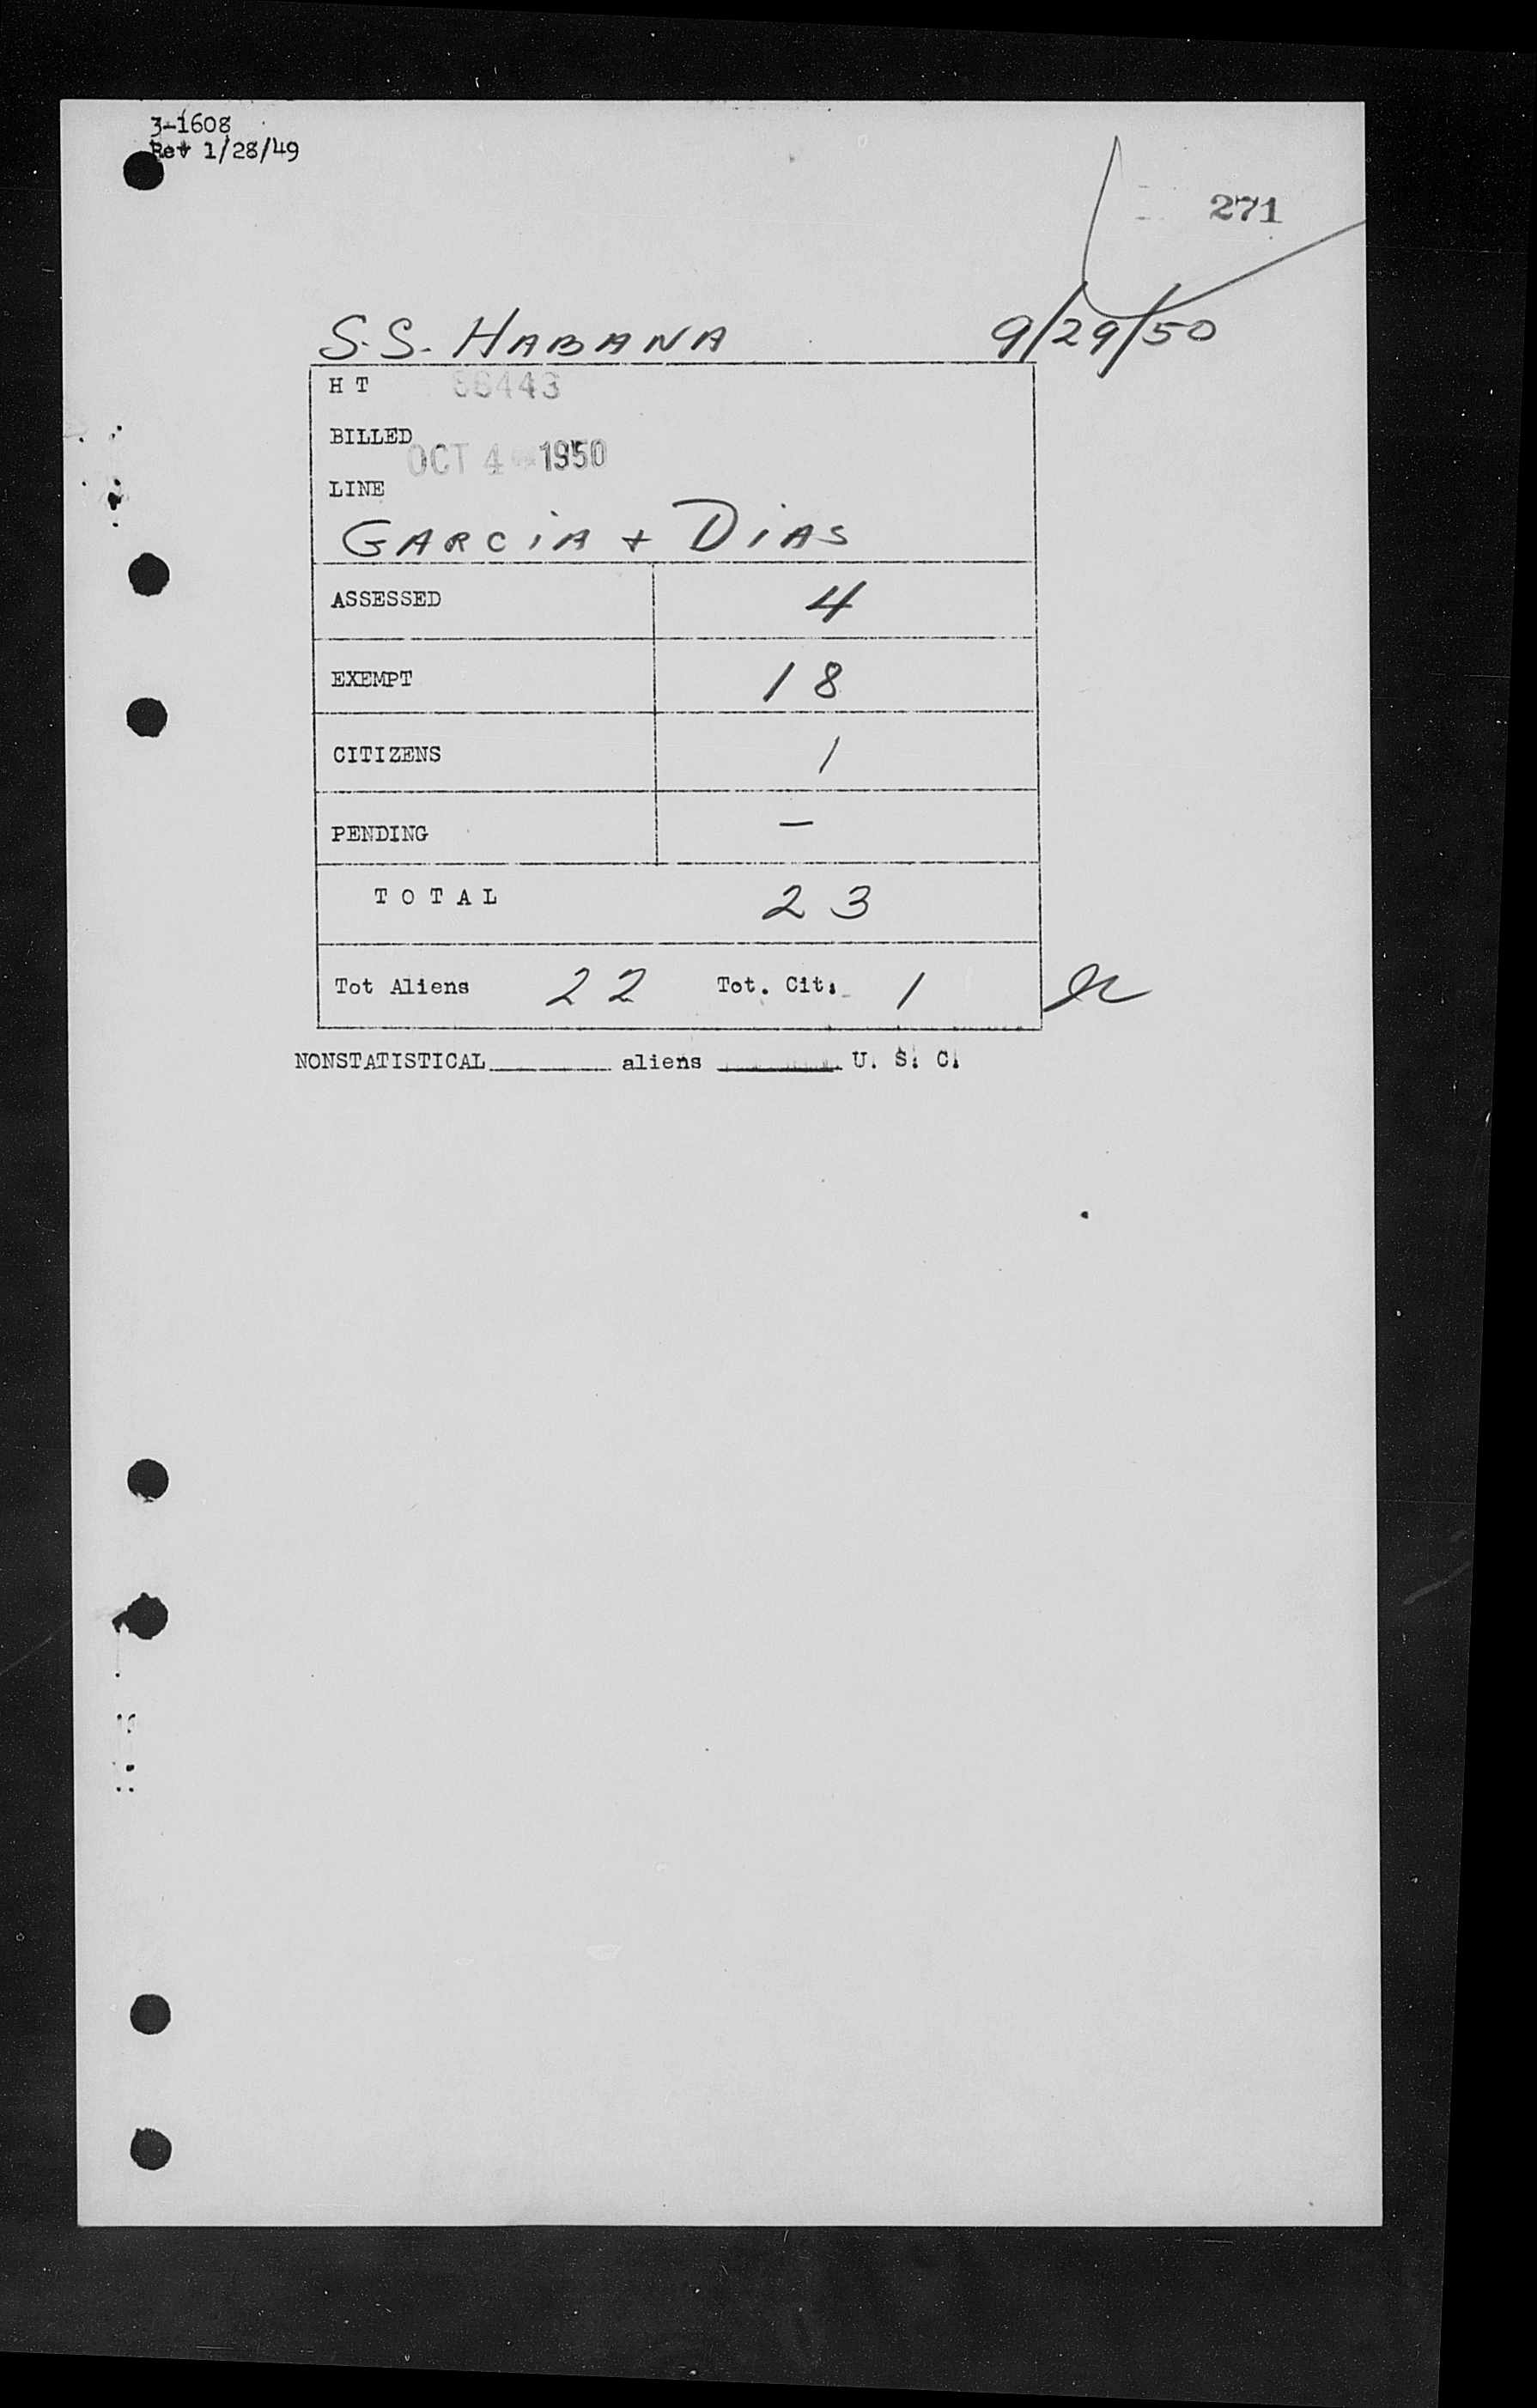 3-1608
Rev 1/28/49
271
S.S. HABANA 9/29/50
H T
BILLED
OCT 4 1950
LINE
GARCIA + DIAS
ASSESSED 4
EXEMPT 18
CITIZENS 1
PENDING —
T O T A L 23
Tot Aliens 22 Tot. Cit. 1
NONSTATISTICAL________ aliens ________ U. S. C.